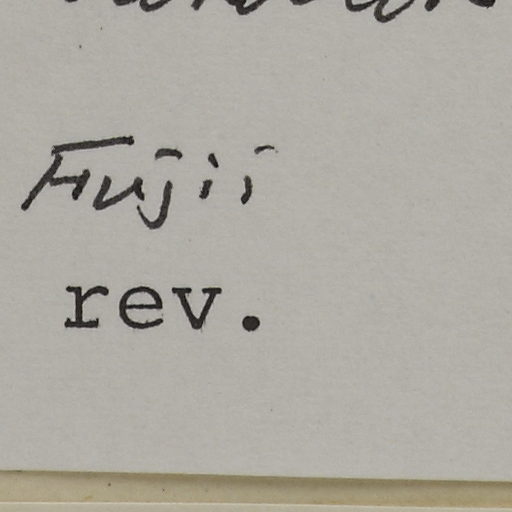 Fujii
rev.